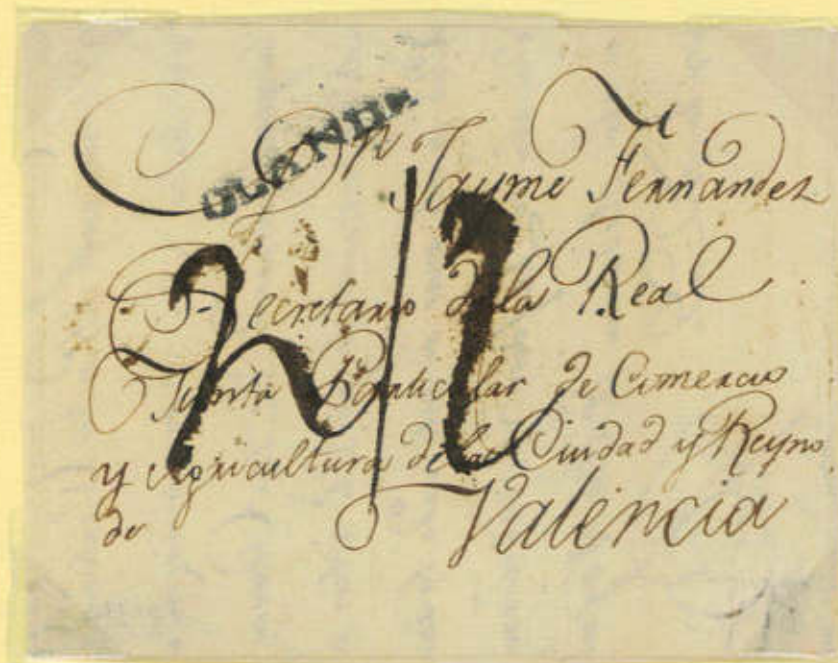 OLANDA
Dn Jayme Fernandez
Secretario de la Real
Junta Particular de Comercio
y Agricultura de la Ciudad y Reyno
de Valencia